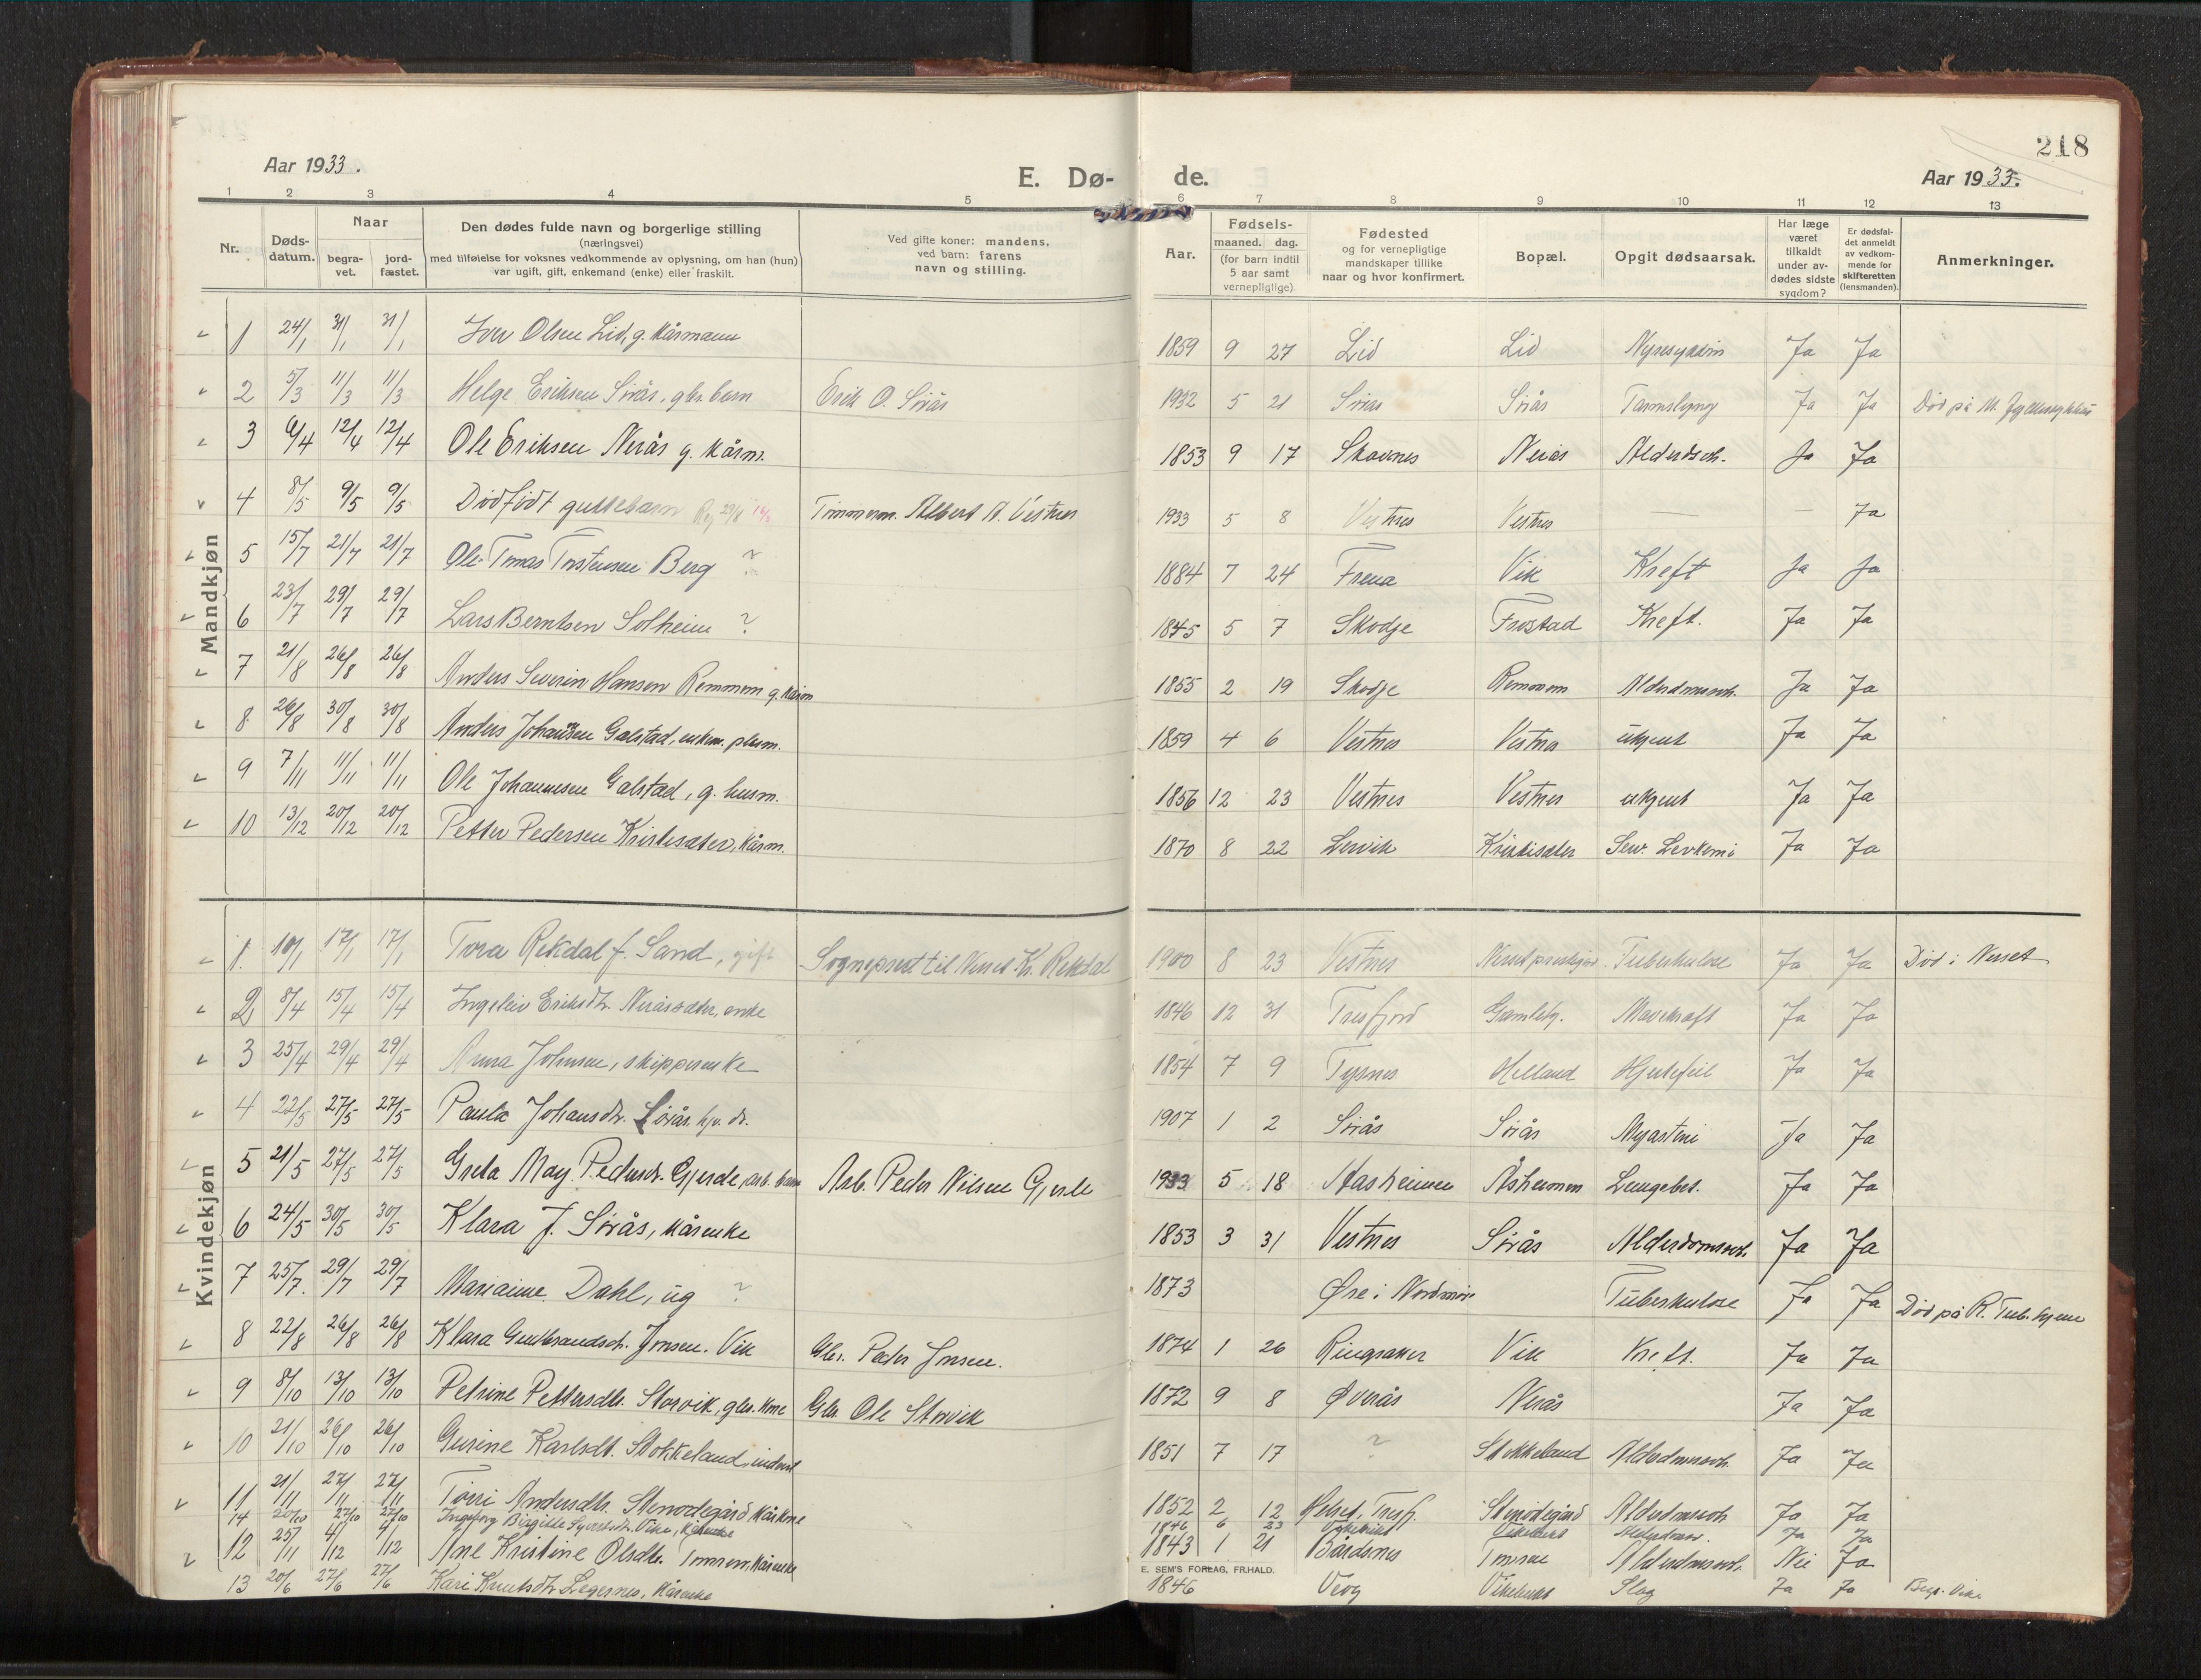 218
Aar 1933.
E. Dø-
de.
Aar 1933.
1 2 3 4 5 6 7 8 9 10 11 12 13
Nr.
Døds-
datum.
Naar
begra-
vet.
jord-
fæstet.
Den dødes fulde navn og borgerlige stilling
(næringsvei)
med tilføielse for voksnes vedkommende av oplysning, om han (hun)
var ugift, gift, enkemand (enke) eller fraskilt.
Ved gifte koner: mandens,
ved barn: farens
navn og stilling.
Aar.
Fødsels-
maaned. dag.
(for barn indtil
5 aar samt
vernepligtige)
Fødested
og for vernepligtige
mandskaper tillike
naar og hvor konfirmert.
Bopæl.
Opgit dødsaarsak.
Har læge
været
tilkaldt
under av-
dødes sidste
sygdom?
Er dødsfal-
det anmeldt
av vedkom-
mende for
skifteretten
(lensmanden).
Anmerkninger.
Mandkjøn
1 24/1 31/1 31/1 Iver Olsen Lid, g. kårmann 1859 9 27 Lid Lid Nyresykdom Ja Ja
2 5/3 11/3 11/3 Helge Eriksen Sørås, gbr. barn Erik O. Sørås 1932 5 21 Sørås Sørås Tarmslyng Ja Ja Død på M. fylkessykehus
3 6/4 12/4 12/4 Ole Eriksen Nerås g. kårm. 1853 9 17 Skavnes Nerås Alderdsvh. Ja Ja
4 8/5 9/5 9/5 Dødfødt guttebarn Timmerm. Albert A. Vestnes 1933 5 8 Vestnes Vestnes — — Ja
5 15/7 21/7 21/7 Ole Tomas Torstensen Berg ? 1884 7 24 Frena Vik Kreft Ja Ja
6 23/7 29/7 29/7 Lars Berntsen Solheim ? 1845 5 7 Skodje Frostad Kreft. Ja Ja
7 21/8 26/8 26/8 Anders Severin Hansen Remmem g. kårm 1855 2 19 Skodje Remmem Alderdmsvh. Ja Ja
8 26/8 30/8 30/8 Anders Johansen Galstad, enkem. plsm. 1859 4 6 Vestnes Vestnes ukjent Ja Ja
9 7/11 11/11 11/11 Ole Johannesen Galstad, g. husm. 1856 12 23 Vestnes Vestnes ukjent Ja Ja
10 13/12 20/12 20/12 Petter Pedersen Kristisæter, kårm. 1870 8 22 Lervik Kristisæter Sew. Levkemi Ja Ja
Kvindekjøn
1. 10/1 17/1 17/1 Tora Rekdal f. Sand, gift Sogneprest til Nesset Kr. Rekdal 1900 8 23 Vestnes Nesset prestegård Tuberkulose Ja Ja Død i Nesset
2 8/4 15/4 15/4 Ingeleiv Eriksdtr. Neråssæter, enke 1846 12 31 Tresfjord Gamleh. Mavekraft Ja Ja
3 25/4 29/4 29/4 Anna Johnsen, skipperenke 1854 7 9 Tysnes Helland Hjertefeil Ja Ja
4 22/5 27/5 27/5 Paula Johansdtr. Sørås. hjv. dr. 1907 1 2 Sørås Sørås Myasteni Ja Ja
5 21/5 27/5 27/5 Greta May Pedersdr. Gjerde, arb. barn Arb. Peder Nilsen Gjerde 1933 5 18 Aasheimen Åsheimen Lungebet. Ja Ja
6 24/5 30/5 30/5 Klara J. Sørås, kårenke 1853 3 31 Vestnes Sørås Alderdomssvh. Ja Ja
7 25/7. 29/7 29/7 Marianne Dahl, ug ? 1873 Øre i Nordmøre Tuberkulose Ja Ja Død på R. Tub. hjem
8 22/8 26/8 26/8 Klara Gudbrandsdt. Jonsen. Vik Gbr. Peder Jonsen. 1874 1 26 Ringsaker Vik Kreft. Ja Ja
9 8/10 13/10 13/10 Petrine Pettersdtr. Storvik, gbr. kone Gbr. Ole Storvik 1872 9 8 Øverås Nerås Ja Ja
10 21/10 26/10 26/10 Gurine Karlsdt. Stokkeland, inderst 1851 7 17 ? Stokkeland Alderdmssvh. Ja Ja
11 21/11 27/11 27/11 Torri Andersdtr. Stenodegård kårkone 1852 2 12 Helset, Tresf. Stenodegård Alderdmssvh Ja Ja
14 20/10 27/10 27/10 Ingeborg Birgitte Syvertsdtr. Vike, kårenke 1846 6 23 Vikebukt Alderdomssv. Ja Ja
12 25/11 4/12 4/12 Ane Kristine Olsdtr. kårenke 1843 1 21 Bårdsnes Alderdmssvh. Nei Ja
E. SEM'S FORLAG, FR.HALD.
13 20/6 27/6 27/6 Kari Knutsdtr Legernes, kårenke 1846 Vevg Vikebukt Slag Ja Ja Begr. Vike